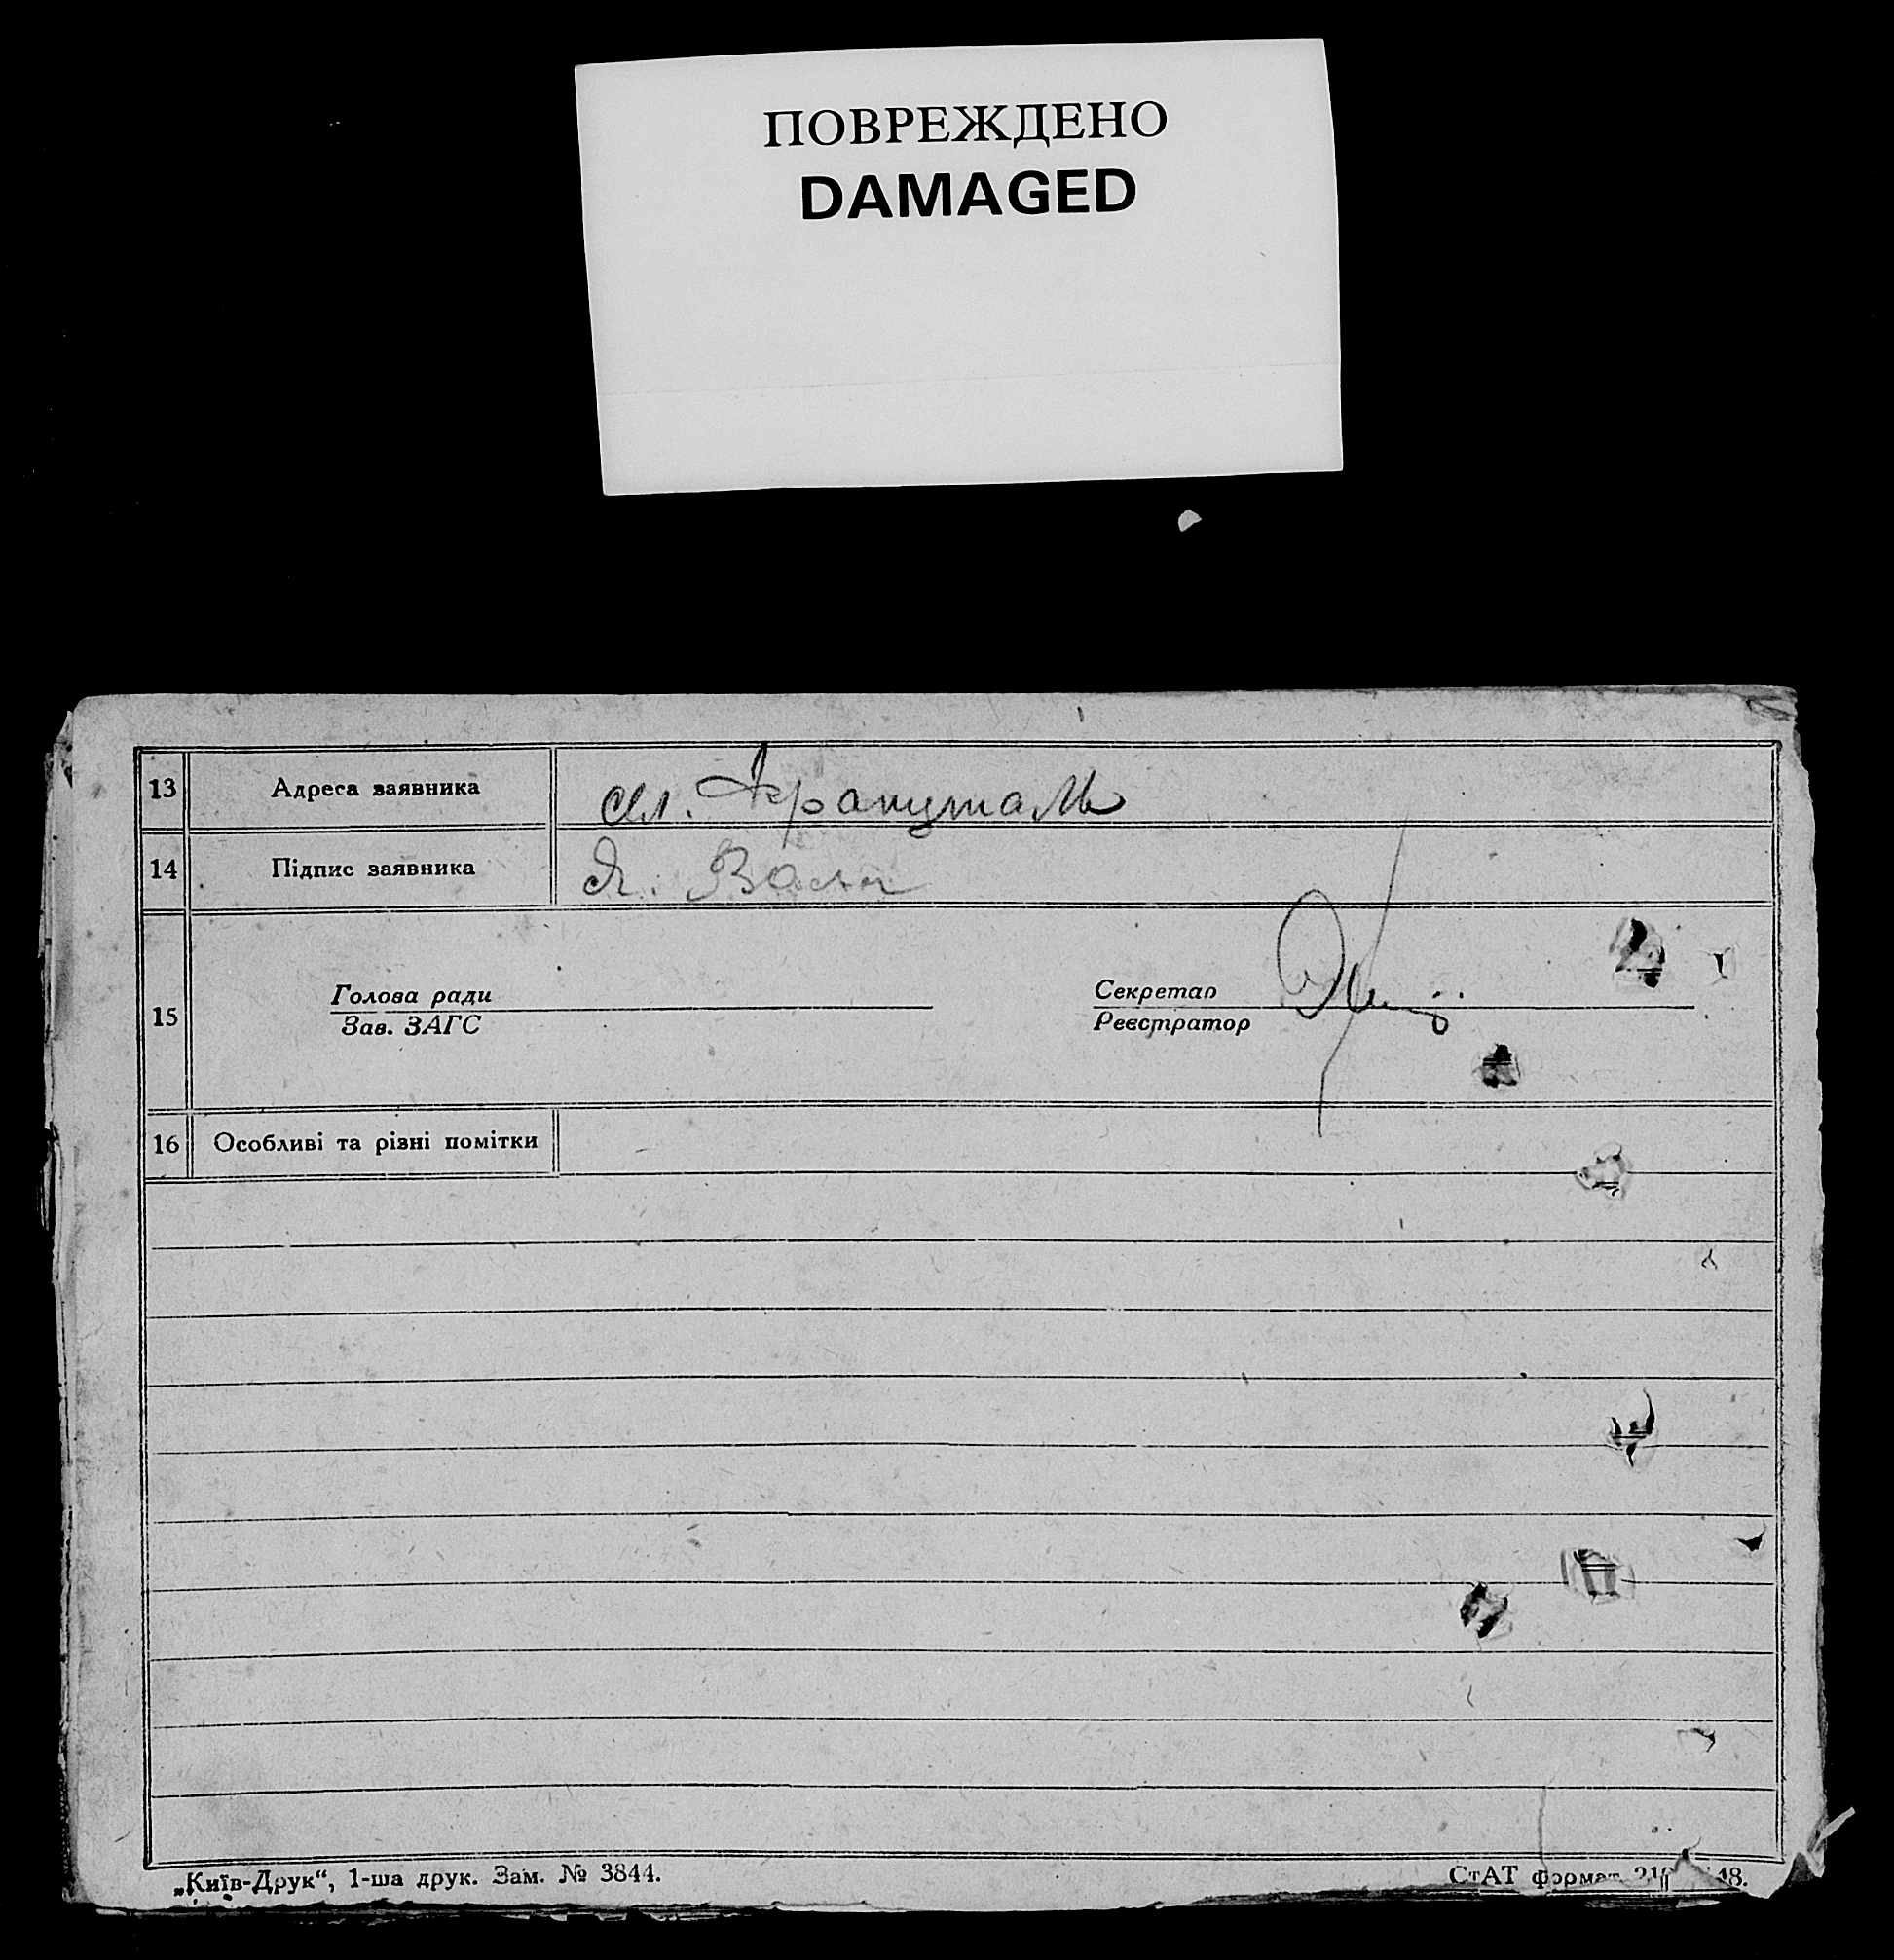 ПОВРЕЖДЕНО
DAMAGED
13 Адреса заявника
14 Підпис заявника Я.
15 Голова ради
Зав. ЗАГС
Секретар
Реєстратор
16 Особливі та різні помітки
„Київ-Друк“, 1-ша друк. Зам. № 3844.
СтАТ формат